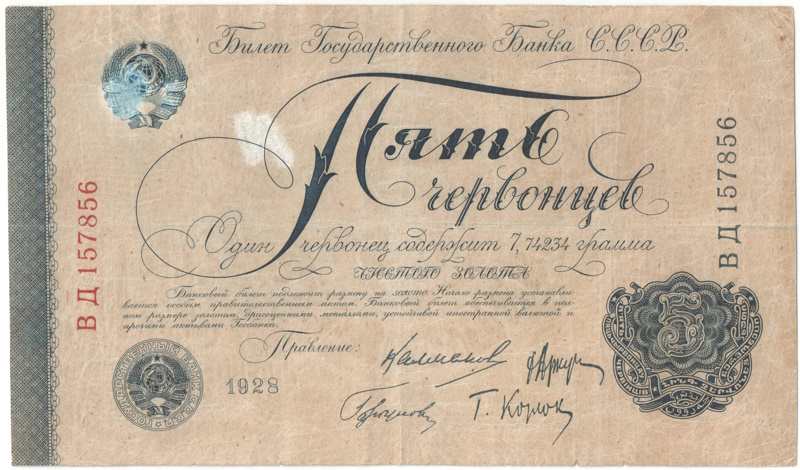 Билет Государственного Банка С.С.С.Р.
Пять
червонцев
Один червонец содержит 7,74234 грамма
ЧИСТОГО ЗОЛОТА
Банковый билет подлежит размену на золото. Начало размена устанавли-
вается особым правительственным актом. Банковый билет обеспечивается в пол-
ном размере золотом, драгоценными металлами, устойчивой иностранной валютой и
прочими активами Госбанка.
Правление:
Калманов
Т. Корлок
1928
ВД 157856
ВД 157856
5